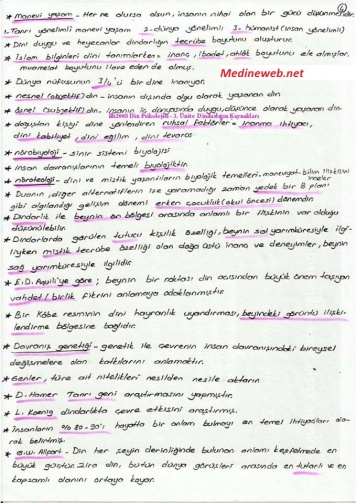 * manevi yaşam - Her ne olursa olsun, insanın nihai olan bir gücü düşünmesidir.
1. Tanrı yönelimli manevi yaşam 2. dünya yönelimli 3. hümanist (insan yönelimli)
* Dini duygu ve heyecanlar dindarlığın tecrübe boyutunu oluşturur.
* İslam bilginleri dini tanımlarken = inanç, ibadet, ahlâk boyutunu ele almışlar.
muamelat boyutunu ilave eden de olmuş.
Medineweb.net
* Dünya nüfusunun 3/4'ü bir dine inanıyor.
* nesnel (objektif) din - insanın dışında olgu olarak yaşanan din
* öznel (subjektif) din - insanın iç dünyasında duygu, düşünce olarak yaşanan din.
2005 Din Psikolojisi - 3. Ünite Dindarlığın Kaynakları
* algıdan kişiyi dine yönlendiren ruhsal faktörler = inanma ihtiyacı,
dini kabiliyet, dini eğilim, dini tevarüs
* nörobiyoloji - sinir sistemi biyolojisi
* insan davranışlarının temeli biyolojiktir.
* nöroteoloji - dini ve mistik yaşantıların biyolojik temelleri. maneviyat - bilim ilişkisini inceler
* Duanın, diğer alternatiflerin işe yaramadığı zaman yedek bir B planı
gibi algılandığı gelişim dönemi erken çocukluk (okul öncesi) dönemdir
* Dindarlık ile beynin ön bölgesi arasında anlamlı bir ilişkinin var olduğu
düşünülebilir.
* Dindarlarda görülen tutucu kişilik özelliği, beynin sol yarımküresiyle ilgi-
liyken mistik tecrübe özelliği olan doğa üstü inanç ve deneyimler, beynin
sağ yarımküresiyle ilgilidir
* E. D. Aquili'ye göre; beynin bir noktası din açısından büyük önem taşıyan
vahdet / birlik fikrini anlamaya adaklanmıştır
* Bir Kâbe resminin dini hayranlık uyandırması, beyindeki görüntü ilişki-
lendirme bölgesine bağlıdır.
* Davranış genetiği - genetik ile çevrenin insan davranışındaki bireysel
değişmelere olan katkılarını anlamaktır.
* Genler, türe ait nitelikleri nesilden nesile aktarır
* D. Hamer Tanrı geni araştırmasını yapmıştır.
* L. Koenig dindarlıkta çevre etkisini araştırmış.
* İnsanların % 80-90'ı hayatta bir anlam bulmayı en temel ihtiyaçları ola-
rak belirtmiş.
* G.W. Allport - Din her şeyin derinliğinde bulunan anlamı keşfetmede en
büyük güçtür. Zira din, bütün dünya görüşleri arasında en tutarlı ve en
kapsamlı olanını ortaya koyar.